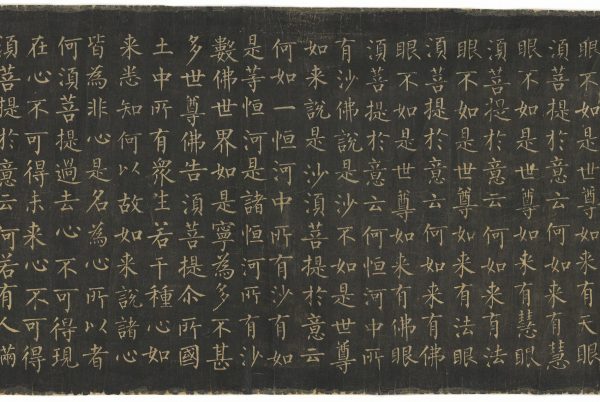 眼不如是世尊如来有天眼
須菩提於意云何如来有慧
眼不如是世尊如来有慧眼
須菩提於意云何如来有法
眼不如是世尊如来有法眼
須菩提於意云何如来有佛
眼不如是世尊如来有佛眼
須菩提於意云何恒河中所
有沙佛說是沙不如是世尊
如来說是沙須菩提於意云
何如一恒河中所有沙有如
是等恒河是諸恒河所有沙
數佛世界如是寧為多不甚
多世尊佛告須菩提尒所國
土中所有衆生若干種心如
来悉知何以故如来說諸心
皆為非心是名為心所以者
何須菩提過去心不可得現
在心不可得未来心不可得
須菩提於意云何若有人滿